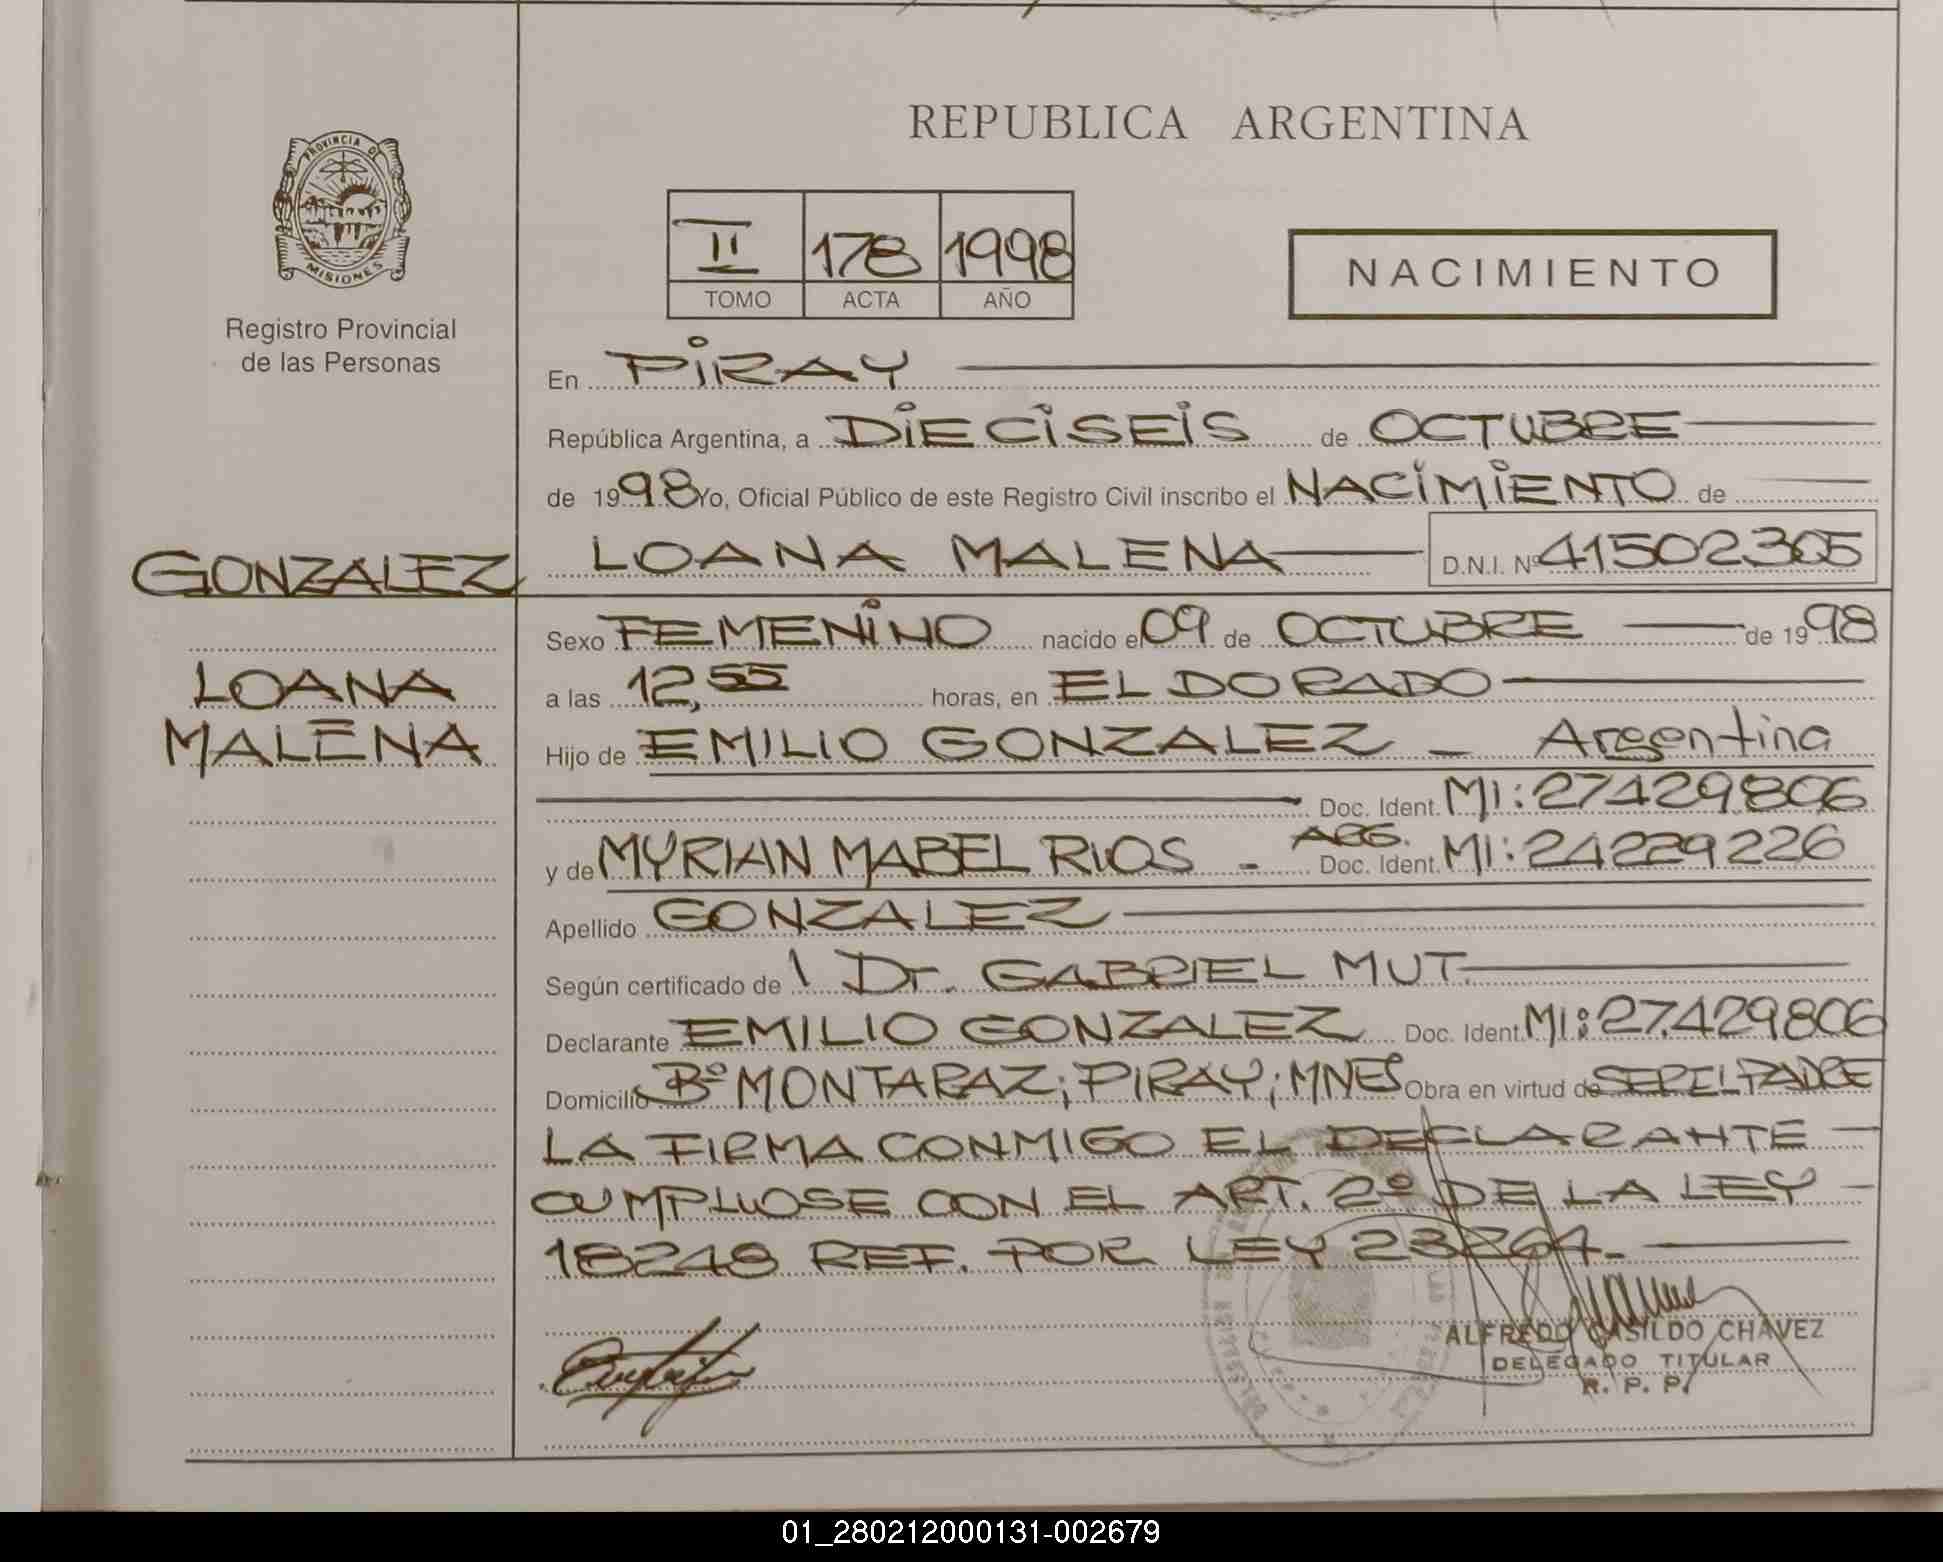 REPUBLICA ARGENTINA
PROVINCIA DE
MISIONES
Registro Provincial
de las Personas
II 178 1998
TOMO ACTA AÑO
NACIMIENTO
En PIRAY
República Argentina, a DIECISEIS de OCTUBRE
de 1998 Yo, Oficial Público de este Registro Civil inscribo el NACIMIENTO de
LOANA MALENA D.N.I. Nº 41502305
GONZALEZ
LOANA
MALENA
Sexo FEMENINO nacido el 09 de OCTUBRE de 1998
a las 12,55 horas, en ELDORADO
Hijo de EMILIO GONZALEZ - Argentina
Doc. Ident. MI: 27429.806
y de MYRIAN MABEL RIOS - ARG. Doc. Ident. MI: 24229226
Apellido GONZALEZ
Según certificado de Dr. GABRIEL MUT.
Declarante EMILIO GONZALEZ Doc. Ident. MI: 27.429806
Domicilio Bº MONTARAZ; PIRAY; MNES Obra en virtud de SER EL PADRE
LA FIRMA CONMIGO EL DECLARANTE -
CUMPLIOSE CON EL ART. 2º DE LA LEY -
18248 REF. POR LEY 23264.-
ALFREDO CASILDO CHAVEZ
DELEGADO TITULAR
R. P. P.
01_280212000131-002679